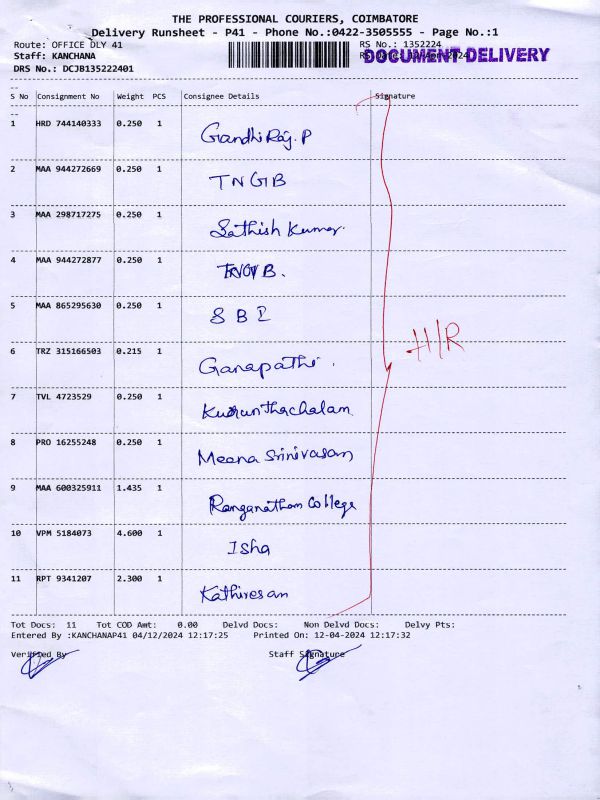 THE PROFESSIONAL COURIERS, COIMBATORE
Delivery Runsheet - P41 - Phone No.:0422-3505555 - Page No.:1
Route: OFFICE DLY 41 RS No.: 1352224
Staff: KANCHANA DOCUMENT DELIVERY
DRS No.: DCJB135222401
S No Consignment No Weight PCS Consignee Details Signature
1 HRD 744140333 0.250 1 Gandhi Raj. P
2 MAA 944272669 0.250 1 TNGB
3 MAA 298717275 0.250 1 Sathish Kumar.
4 MAA 944272877 0.250 1 TNGB.
5 MAA 865295630 0.250 1 SBI
H/R
6 TRZ 315166503 0.215 1 Ganapathi.
7 TVL 4723529 0.250 1 Kurunthachalam
8 PRO 16255248 0.250 1 Meena Srinivasan
9 MAA 600325911 1.435 1 Ranganatham College
10 VPM 5184073 4.600 1 Isha
11 RPT 9341207 2.300 1 Kathiresan
Tot Docs: 11 Tot COD Amt: 0.00 Delvd Docs: Non Delvd Docs: Delvy Pts:
Entered By :KANCHANAP41 04/12/2024 12:17:25 Printed On: 12-04-2024 12:17:32
Verified By Staff Signature